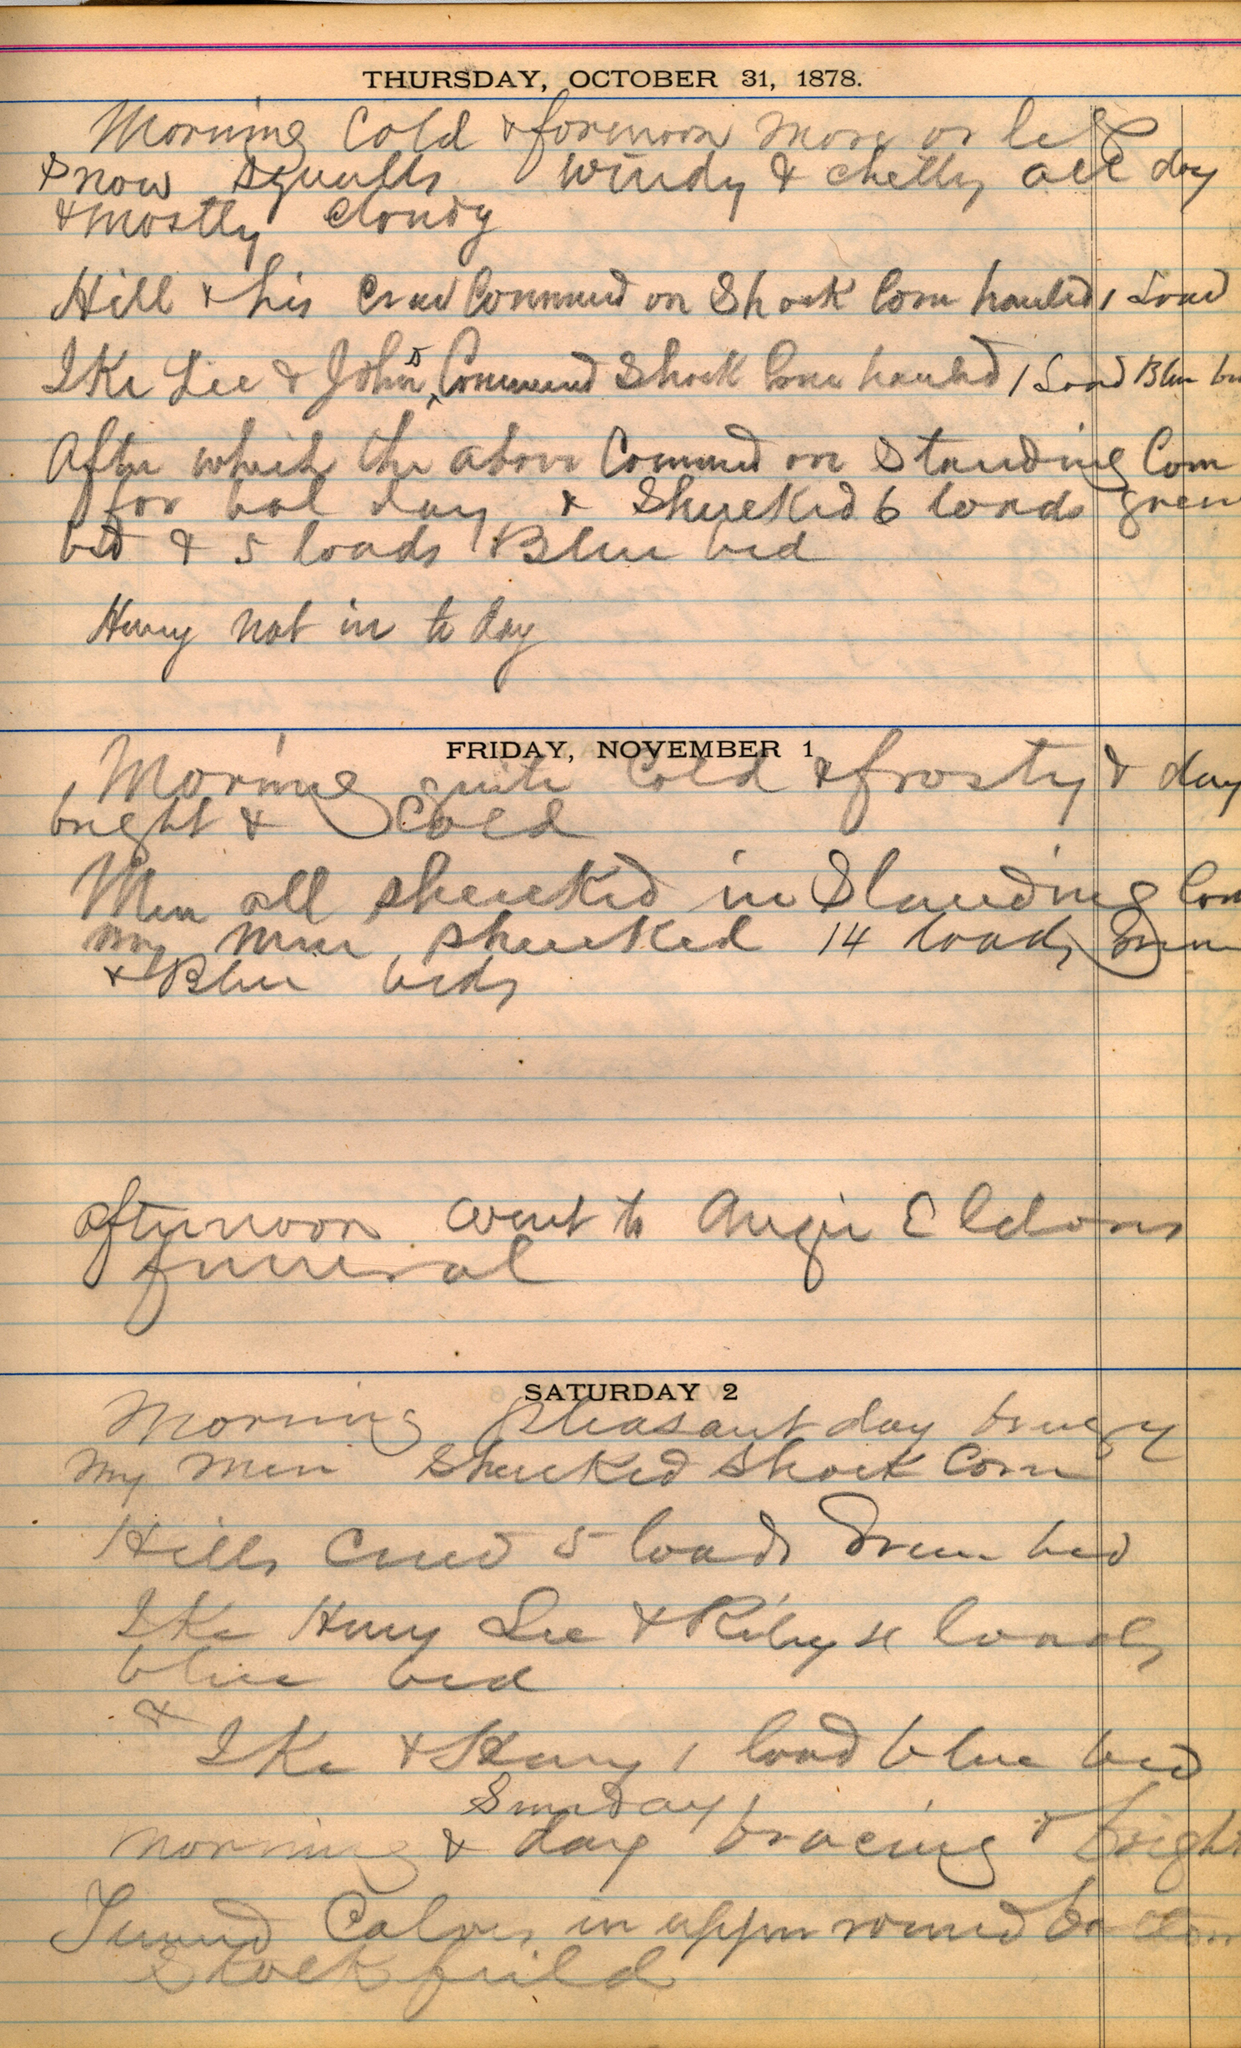 THURSDAY, OCTOBER 31, 1878.
Morning Cold & forenoon more or less
snow squalls windy & chilly all day
& mostly cloudy
Hill & his crew Commenced on Shock Corn hauled 1 Load
Ike Lee & John S Commenced Shock Corn hauled 1 Load Blue bed
After which the above Commenced on Standing Corn
for bal day & Shucked 6 loads green
bed & 5 loads Blue bed
Henry not in to day
FRIDAY, NOVEMBER 1
Morning quite Cold & frosty & day
bright & Cold
Men all shucked in Standing Corn
my men shucked 14 loads Green
& Blue beds
afternoon went to Angie Eldons
funeral
SATURDAY 2
Morning pleasant day
My men Shucked Shock Corn
Hills Crew 5 loads Green bed
Ike Henry Lee & Riley 4 loads
blue bed
&
Ike & Henry 1 load blue bed
Sunday
morning & day bracing & bright
Turned Calves in upper round bottom
Stock field